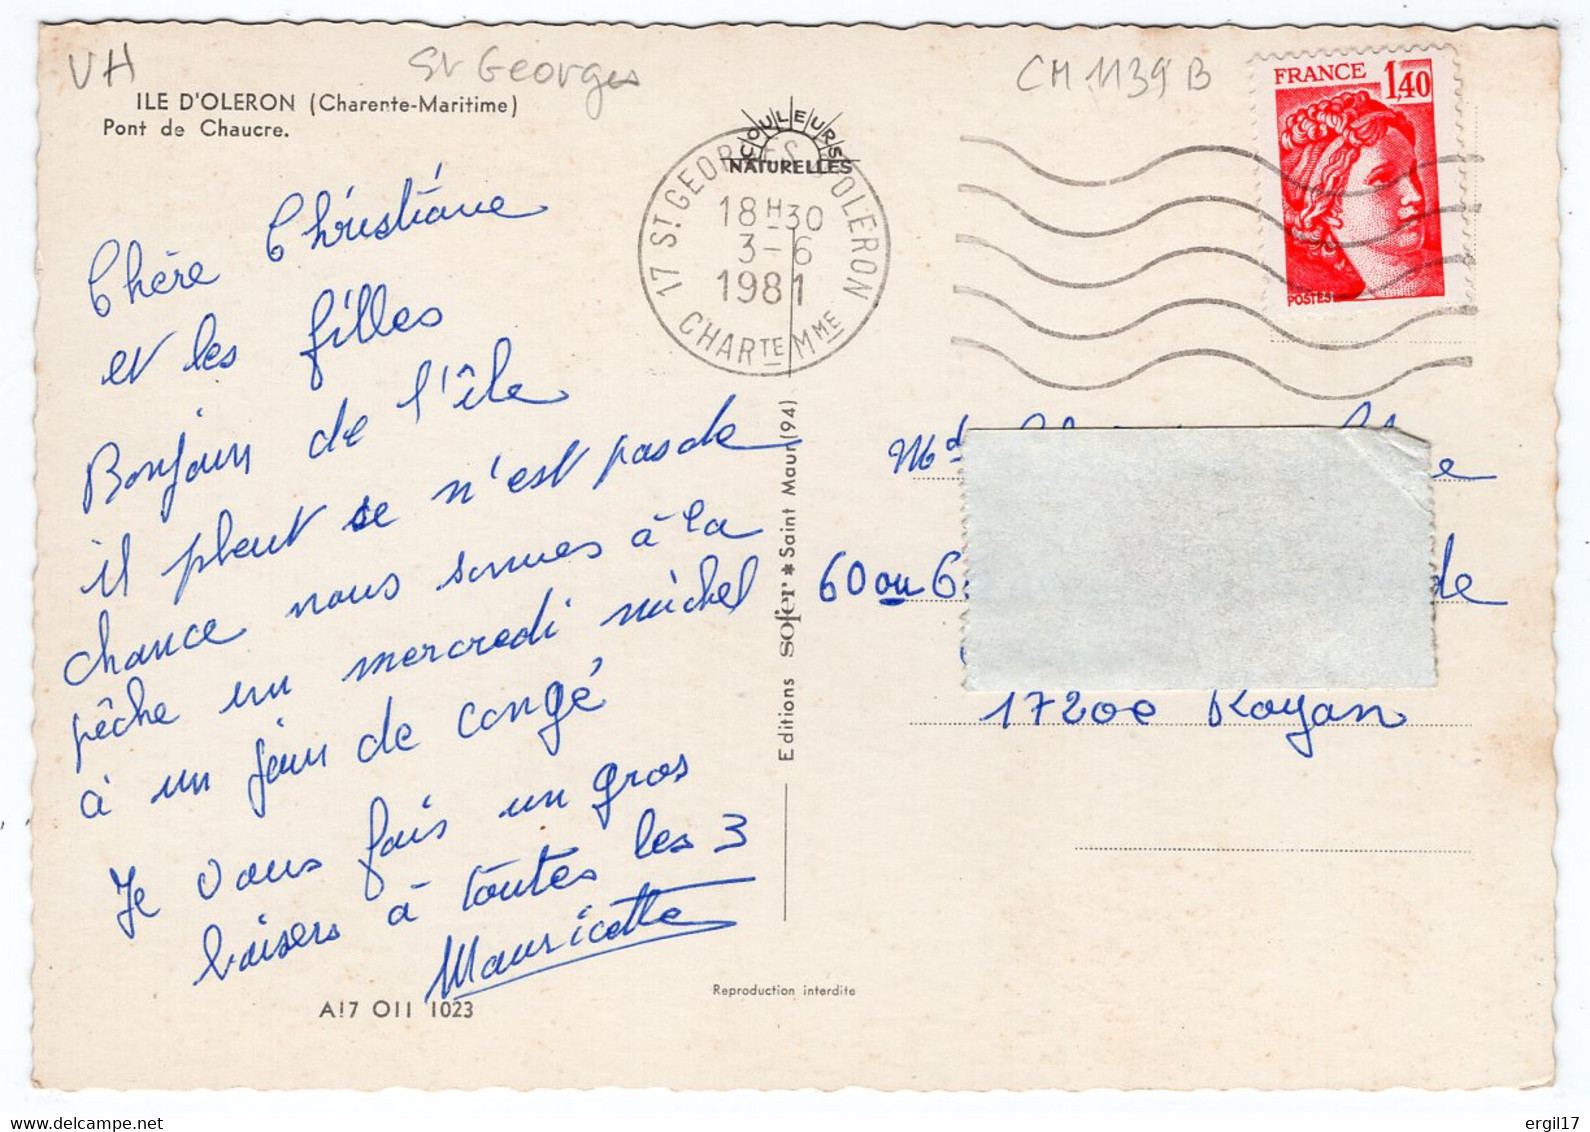 VH
St Georges
CM 1139 B
ILE D'OLERON (Charente-Maritime)
Pont de Chaucre.
COULEURS
NATURELLES
17 ST GEORGES D'OLERON
18H30
3-6
1981
CHARTE MME
FRANCE 1,40
POSTES
Chère Christiane
et les filles
Bonjour de l'île
il pleut ce n'est pas de
chance nous sommes à la
pêche un mercredi michel
à un jour de congé
Je vous fais un gros
baisers à toutes les 3
Mauricette
A17 011 1023
Editions sofer * Saint Maur (94)
Reproduction interdite
Md
60 ou 6
de
17200 Royan
delcampe.net
ergil17